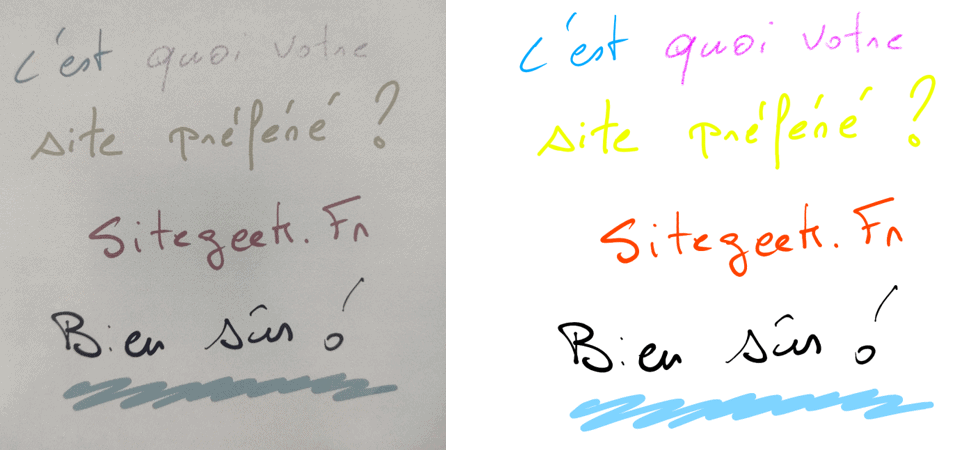 C'est quoi votre
site préféré ?
Sitegeek.Fr
Bien sûr !
C'est quoi votre
site préféré ?
Sitegeek.Fr
Bien sûr !